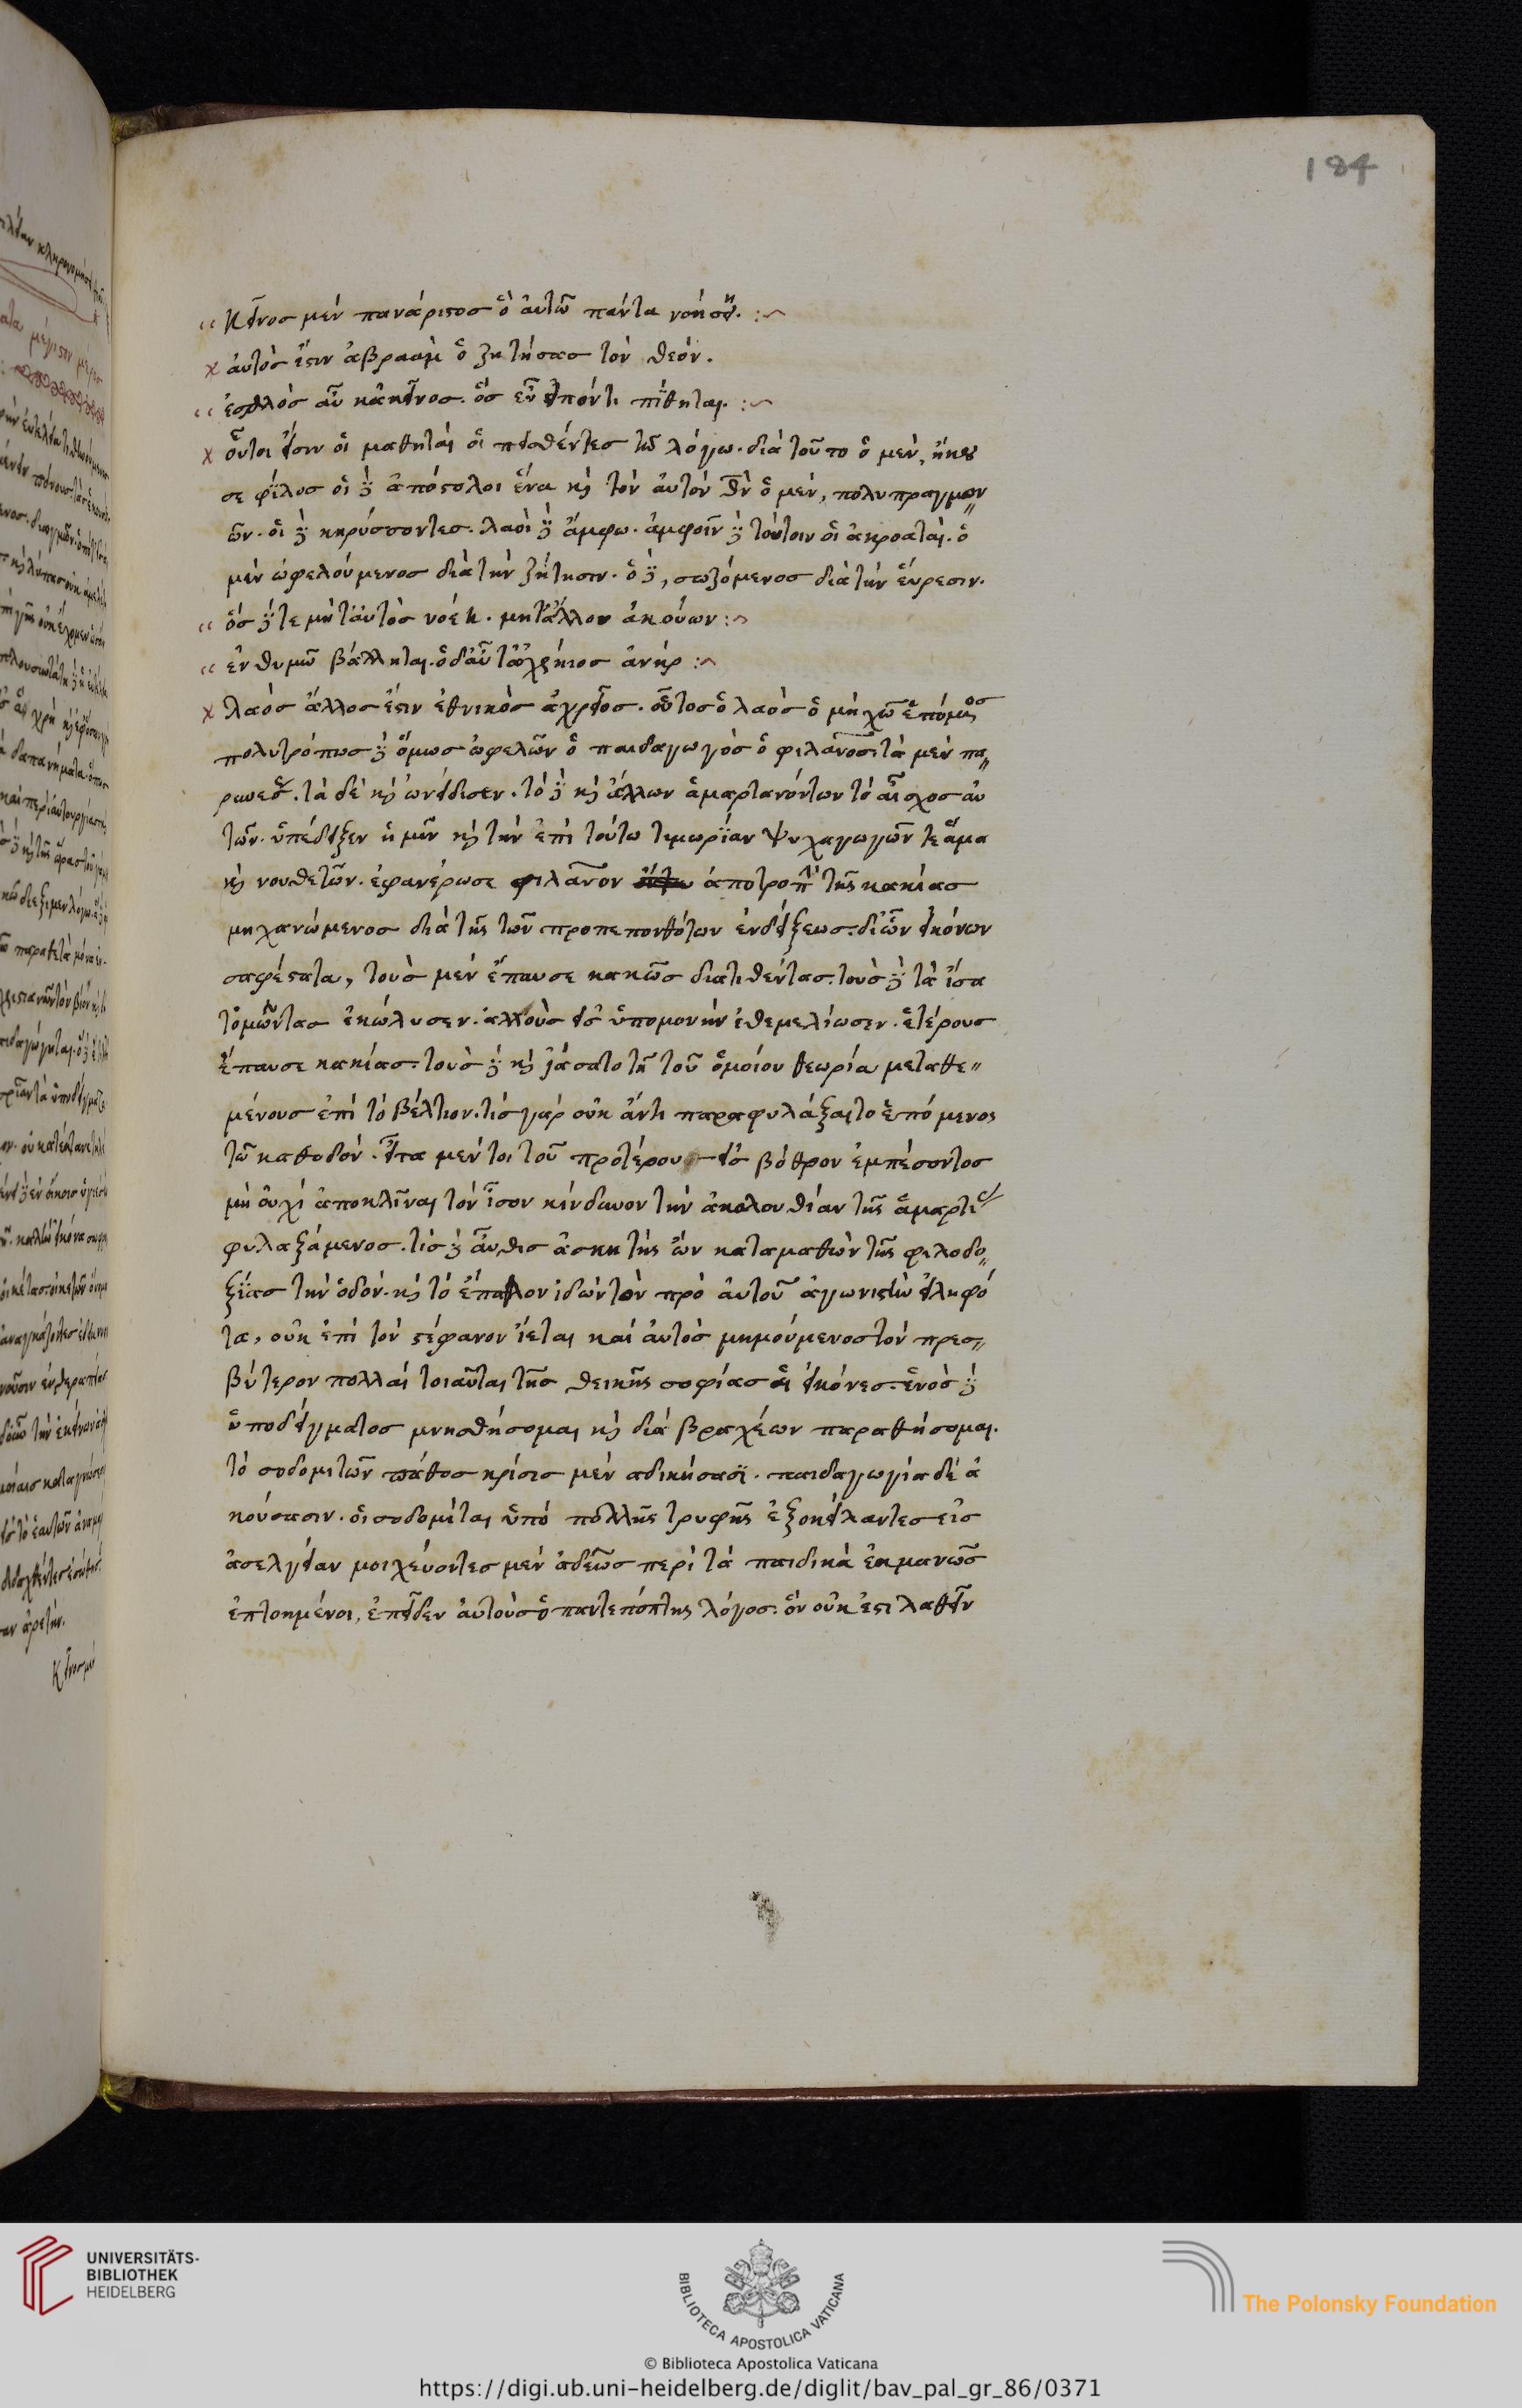 184
κεῖνος μὲν πανάριστος ὃ αὐτῶ πάντα νοήσῃ.
αὐτός ἐστιν ἀβραὰμ ὁ ζητήσας τὸν θεόν.
ἐσθλὸς αὖ κἀκεῖνος. ὃς εὖ εἰπόντι πίθηται.
οὗτοι εἰσιν οἱ μαθηταὶ οἱ πεισθέντες τῶ λόγω. διὰ τοῦτο ὁ μὲν, ἤκου
σε φίλος οἱ δὲ ἀπόστολοι ἕνα καὶ τὸν αὐτὸν θν ὁ μὲν, πολυπραγμον
ῶν. οἱ δὲ κηρύσσοντες. λαοὶ δὲ ἄμφω. ἀμφοῖν δὲ τούτοιν οἱ ἀκροαταί. ὁ
μὲν ὠφελούμενος διὰ τὴν ζήτησιν. ὁ δὲ, σωζόμενος διὰ τὴν εὕρεσιν.
ὃς δέ τε μήτ' αὐτὸς νοέη. μήτ' ἄλλου ἀκούων
ἐν θυμῶ βάλληται. ὁ δ' αὖτ' ἀχρήιος ἀνήρ
λαὸς ἄλλος ἐστὶν ἐθνικὸς ἀχρεῖος. οὗτος ὁ λαὸς ὁ μὴ χῶ ἑπόμενος
πολυτρόπως δὲ ὅμως ὠφελῶν ὁ παιδαγωγὸς ὁ φιλανος. τὰ μὲν πα
ρήνεσε. τὰ δὲ καὶ ὠνείδισεν. τὸ δὲ καὶ ἄλλων ἁμαρτανόντων τὸ αἶσχος αὐ
τῶν. ὑπέδειξεν ἡμῖν καὶ τὴν ἐπὶ τούτω τιμωρίαν ψυχαγωγῶν τε ἅμα
καὶ νουθετῶν. ἐφανέρωσε φιλανον ἀποτροπὴν τῆς κακίας
μηχανώμενος διὰ τῆς τῶν προπεπονθότων ἐνδείξεως. δι' ὧν εἰκόνων
σαφέστατα, τοὺς μὲν ἔπαυσε κακῶς διατιθέντας. τοὺς δὲ τὰ ἴσα
τολμῶντας ἐκώλυσεν. ἀλλοὺς εἰς ὑπομονὴν ἐθεμελίωσεν. ἑτέρους
ἔπαυσε κακίας. τοὺς δὲ καὶ ἰάσατο τῆ τοῦ ὁμοίου θεωρία μεταθε
μένους ἐπὶ τὸ βέλτιον. τίς γὰρ οὐκ ἄν τι παραφυλάξαιτο ἑπόμενος
τῶ καθοδόν. εἶτα μέν τοι τοῦ προτέρου εἰς βόθρον ἐμπέσοντος
μὴ οὐχὶ ἀποκλῖναι τὸν ἶσον κίνδυνον τὴν ἀκολουθίαν τῆς ἁμαρτίας
φυλαξάμενος. τίς δὲ αὖθις ἀσκητὴς ὢν καταμαθὼν τῆς φιλοδο
ξίας τὴν ὁδόν. καὶ τὸ ἔπαθλον ἰδὼν τὸν πρὸ αὐτοῦ ἀγωνιστὴν εἰληφό
τα, οὐκ ἐπὶ τὸν στέφανον ἵεται καὶ αὐτὸς μημούμενος τὸν πρεσ
βύτερον πολλαὶ τοιαῦται τῆς θεικῆς σοφίας αἱ εἰκόνες. ἑνὸς δὲ
ὑποδείγματος μνησθήσομαι καὶ διὰ βραχέων παραθήσομαι.
τὸ σοδομιτῶν πάθος κρίσις μὲν αδικήσασϊ. παιδαγωγία δὲ ἀ
κούσασιν. οἱ σοδομίται ὑπὸ πολλῆς τρυφῆς ἐξοκείλαντες εἰς
ἀσελγείαν μοιχεύοντες μὲν ἀδεῶς περὶ τὰ παιδικὰ ἐκμανῶς
ἐπτοημένοι, ἐπεῖδεν αὐτοὺς ὁ παντεπόπτης λόγος. ὃν οὐκ ἔστι λαθεῖν
UNIVERSITÄTS-
BIBLIOTHEK
HEIDELBERG
BIBLIOTECA APOSTOLICA VATICANA
The Polonsky Foundation
© Biblioteca Apostolica Vaticana
https://digi.ub.uni-heidelberg.de/diglit/bav_pal_gr_86/0371